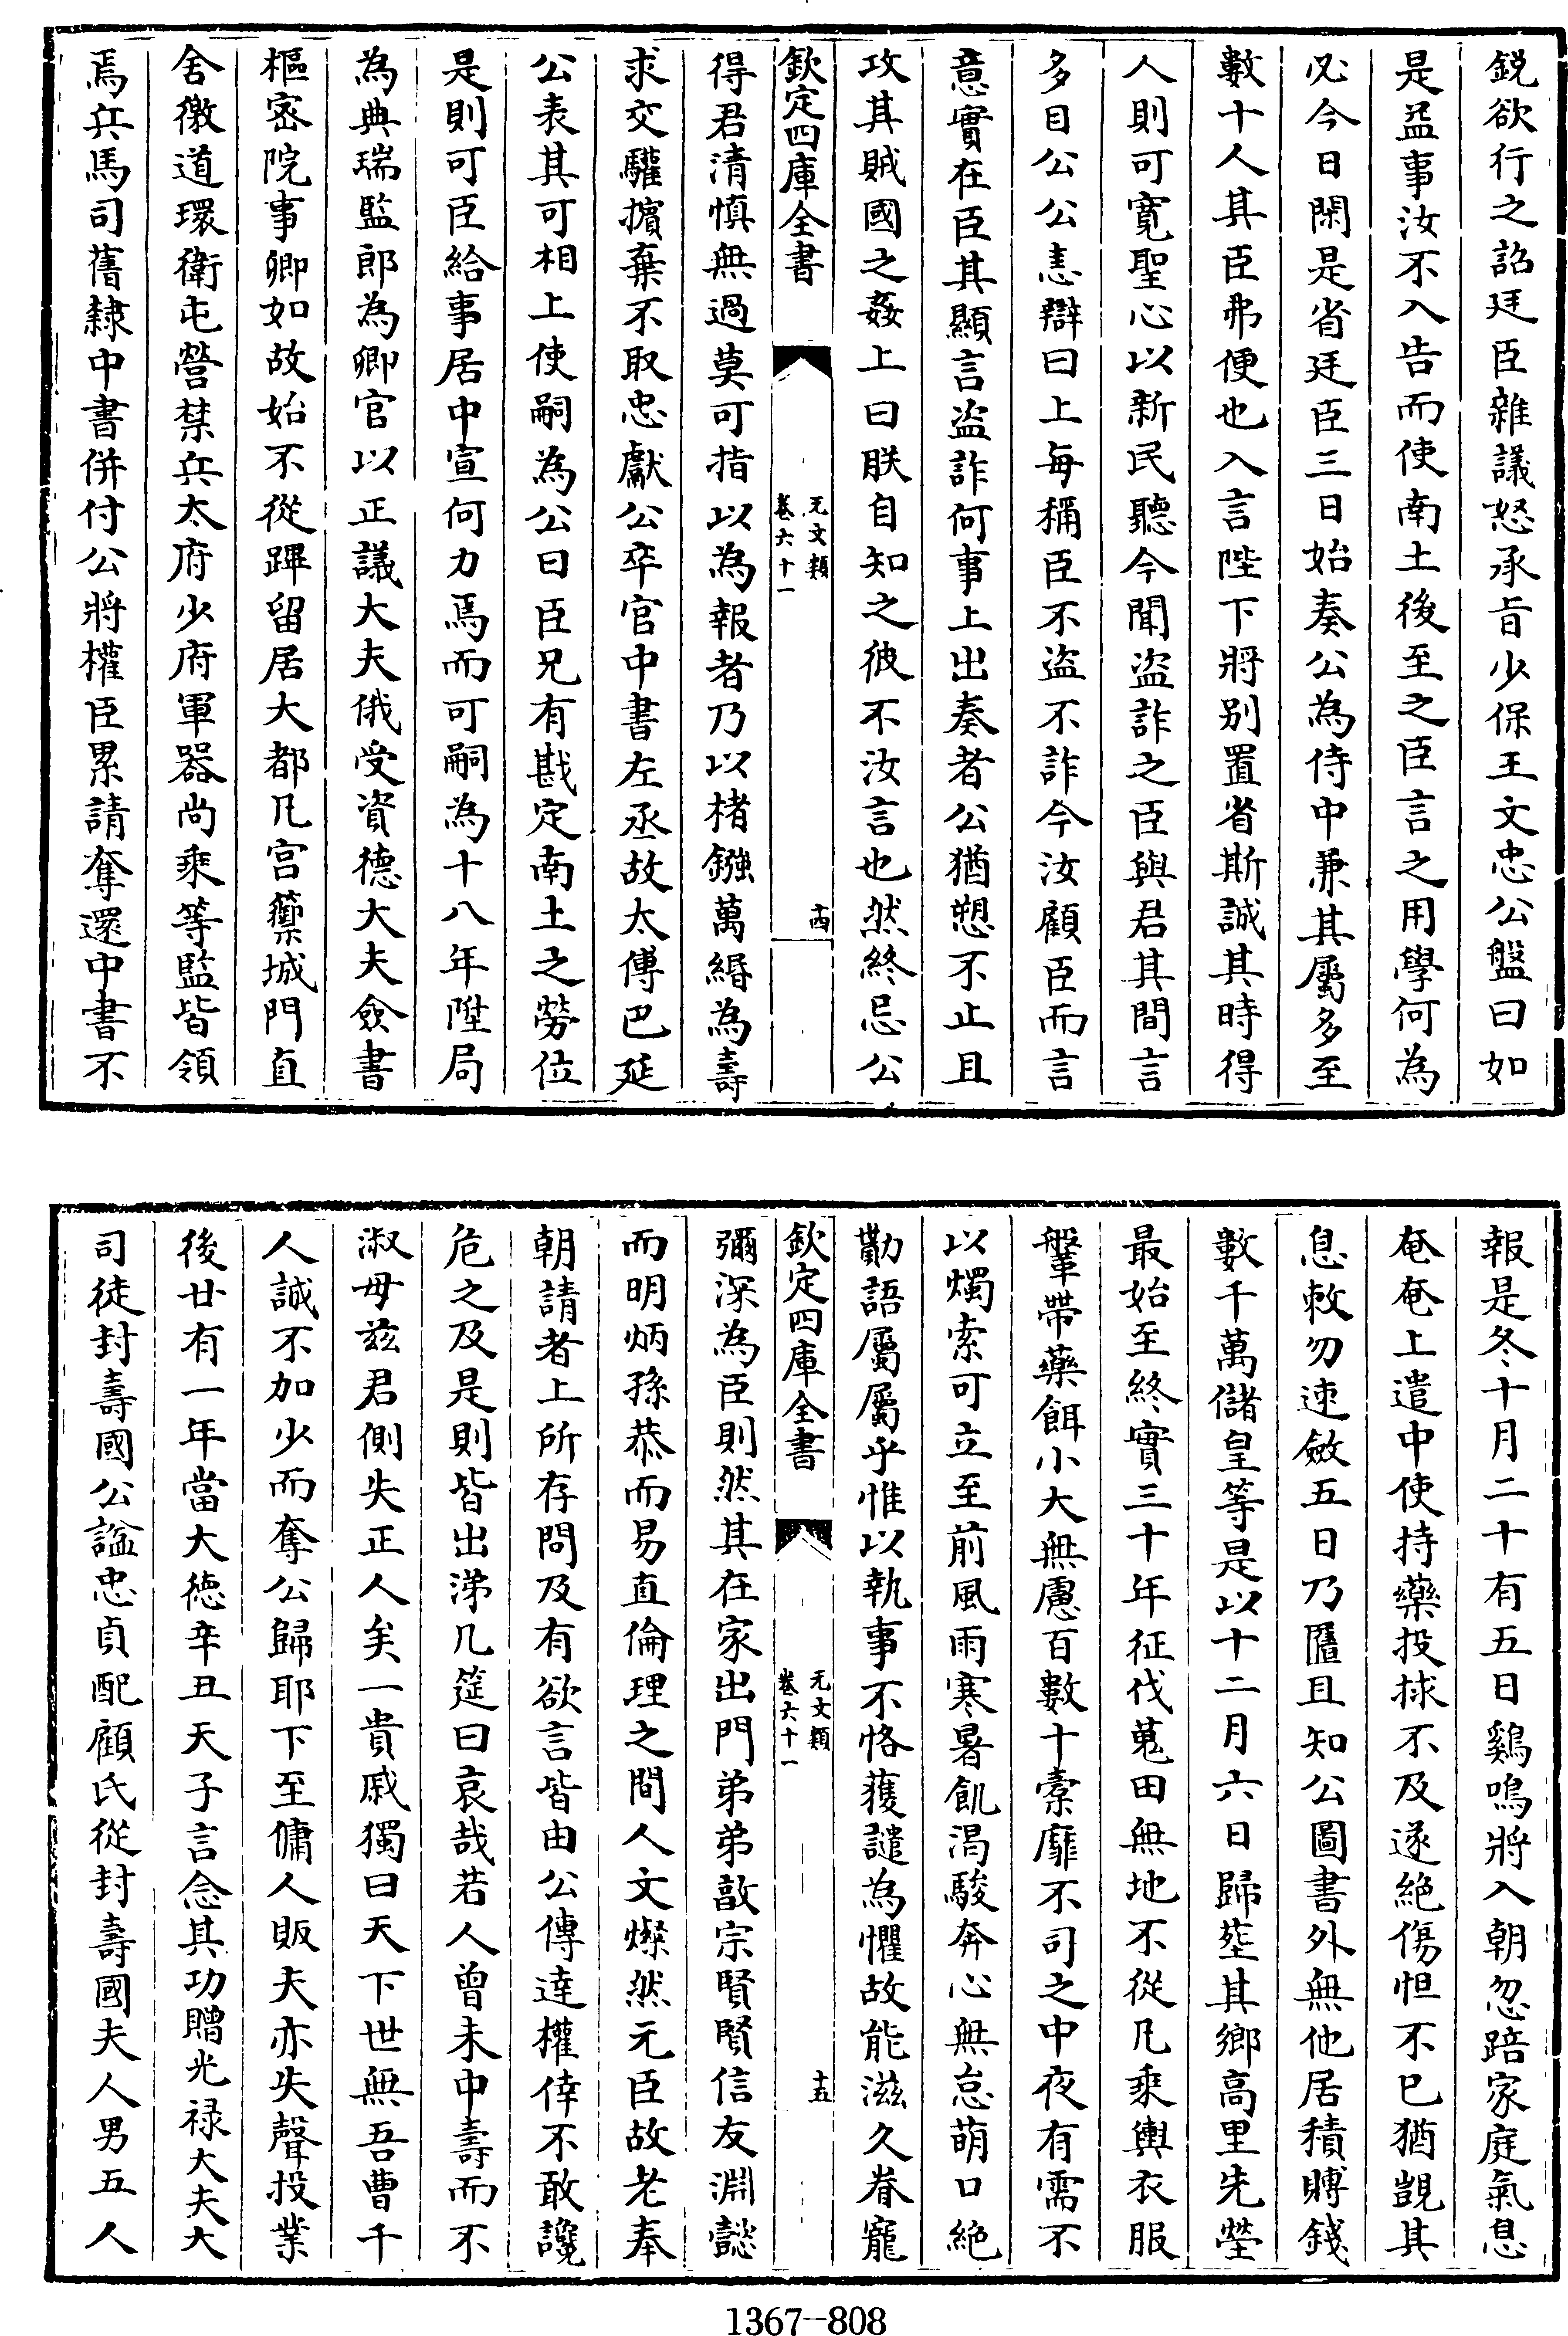 鋭欲行之詔廷臣雜議怒承㫖少保王文忠公盤曰如
是益事汝不入告而使南土後至之臣言之用學何為
必今日閑是省廷臣三日始奏公為侍中兼其屬多至
數十人其臣弗便也入言陛下將别置省斯誠其時得
人則可寛聖心以新民聽今聞盜詐之臣與君其間言
多目公公恚辯曰上每稱臣不盜不詐今汝顧臣而言
意實在臣其顯言盜詐何事上出奏者公猶愬不止且
攻其賊國之姦上曰朕自知之彼不汝言也然終忌公
欽定四庫全書
元文類
卷六十一
十四
得君清慎無過莫可指以為報者乃以楮鏹萬緡為壽
求交驩擯棄不取忠獻公卒官中書左丞故太傅巴延
公表其可相上使嗣為公曰臣兄有戡定南土之勞位
是則可臣給事居中宣何力焉而可嗣為十八年陞局
為典瑞監郎為卿官以正議大夫俄受資德大夫僉書
樞密院事卿如故始不從蹕留居大都凡宫籞城門直
舍徼道環衛屯營禁兵太府少府軍器尚乘等監皆領
焉兵馬司舊隸中書併付公將權臣累請奪還中書不
報是冬十月二十有五日鷄鳴將入朝忽踣家庭氣息
奄奄上遣中使持藥投捄不及遂絶傷怛不已猶覬其
息敕勿速斂五日乃匶且知公圖書外無他居積賻錢
數千萬儲皇等是以十二月六日歸塟其鄉高里先塋
最始至終實三十年征伐蒐田無地不從凡乘輿衣服
鞶鞶帶藥餌小大無慮百數十櫜靡不司之中夜有需不
以燭索可立至前風雨寒暑飢渴駿奔心無怠萌口絶
勩語屬屬乎惟以執事不恪獲譴為懼故能滋久眷寵
欽定四庫全書
元文類
卷六十一
十五
彌深為臣則然其在家出門弟弟敬宗賢賢信友淵懿
而明炳孫恭而易直倫理之間人文燦然元臣故老奉
朝請者上所存問及有欲言皆由公傳達權倖不敢讒
危之及是則皆出涕几筵曰哀哉若人曾未中壽而不
淑毋兹君側失正人矣一貴戚獨曰天下世無吾曹千
人誠不加少而奪公歸耶下至傭人販夫亦失聲投業
後廿有一年當大徳辛丑天子言念其功贈光禄大夫大
司徒封壽國公諡忠貞配顧氏從封壽國夫人男五人
1367-808